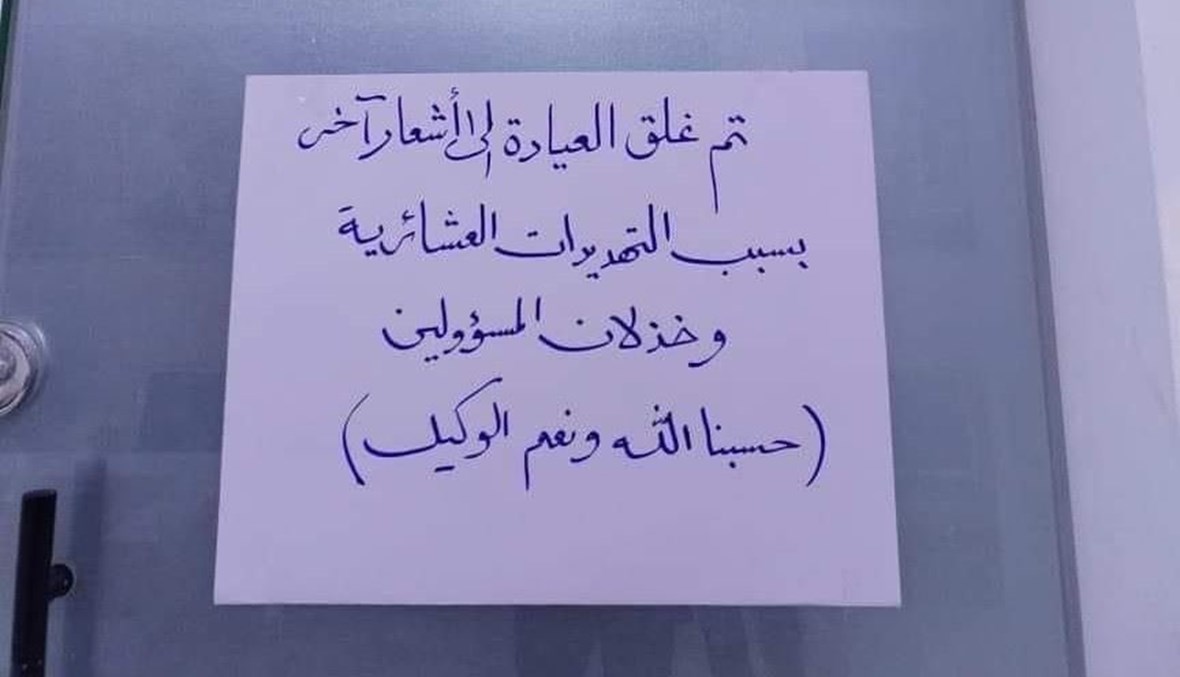 تم غلق العيادة إلى أشعار آخر
بسبب التهديدات العشائرية
وخذلان المسؤولين
(حسبنا الله ونعم الوكيل)